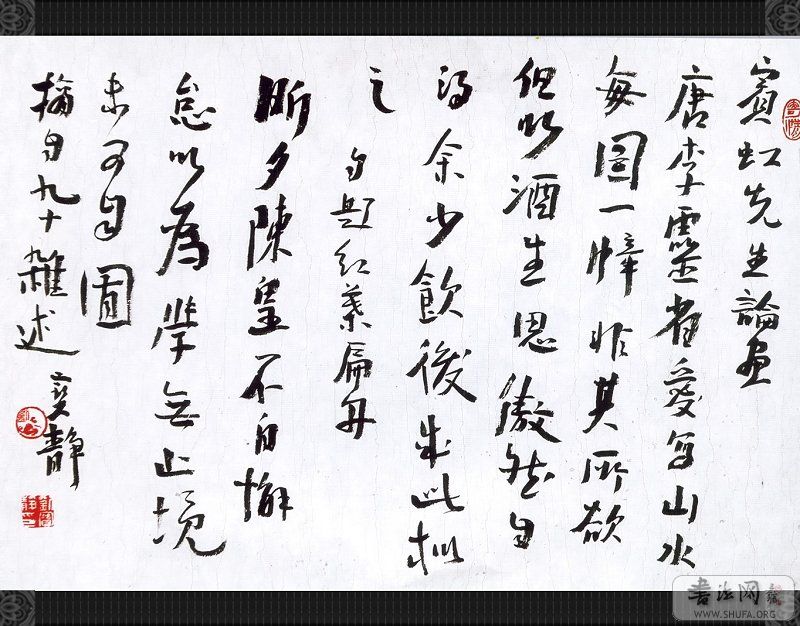 賓虹先生論画
唐李靈省愛写山水
每圖一幛非其所欲
但以酒生思傲然自
得余少飲後成此拟
之 自題紅葉扁舟
昕夕陳皇不自懈
怠以為學無止境
未可自画
摘自九十雜述 奕靜
書法网
WWW.SHUFA.ORG